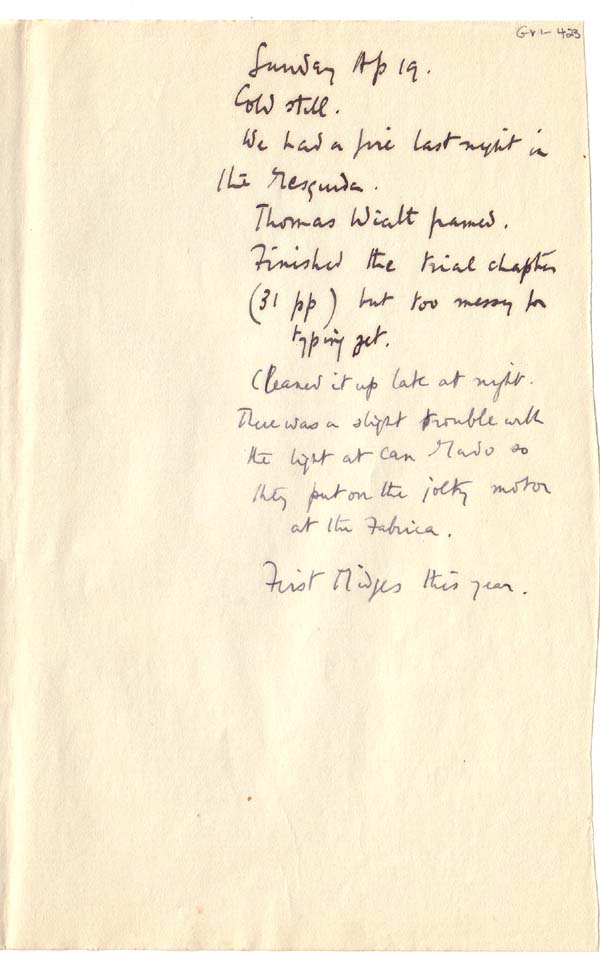 Gv1-423
Sunday Ap 19.
Cold still.
We had a fire last night in
the Posguida.
Thomas Wialt framed.
Finished the trial chapter
(31 pp) but too messy for
typing yet.
Cleaned it up late at night.
There was a slight trouble with
the light at Can Mado so
they put on the jolty motor
at the Fabrica.
First Midges this year.